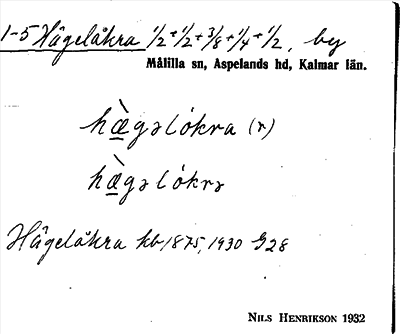 1-5 Hägelåkra 1/2+1/2+3/8+1/4+1/2, by
Målilla sn, Aspelands hd, Kalmar län.
hæ̀gəlókra (r)
hæ̀gəlókrə
Hägelåkra kb 1875, 1930 G28
NILS HENRIKSON 1932